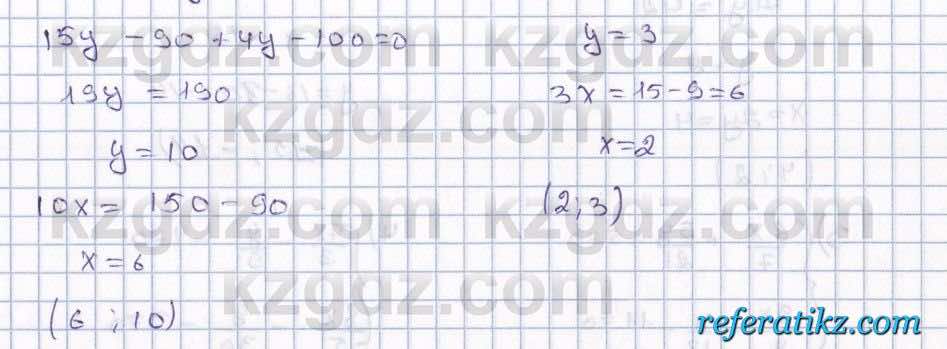 15y - 90 + 4y - 100 = 0
19y = 190
y = 10
10x = 150 - 90
x = 6
(6 ; 10)
y = 3
3x = 15 - 9 = 6
x = 2
(2; 3)
kzgdz.com
kzgdz.com
kzgdz.com
kzgdz.com
kzgdz.com
kzgdz.com
referatikz.com